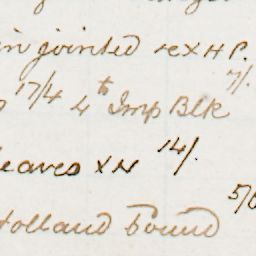 in jointed rexHP.
17/4 4th Imp Blk 7/.
leaves XN 14/.
Holland bound 5/6